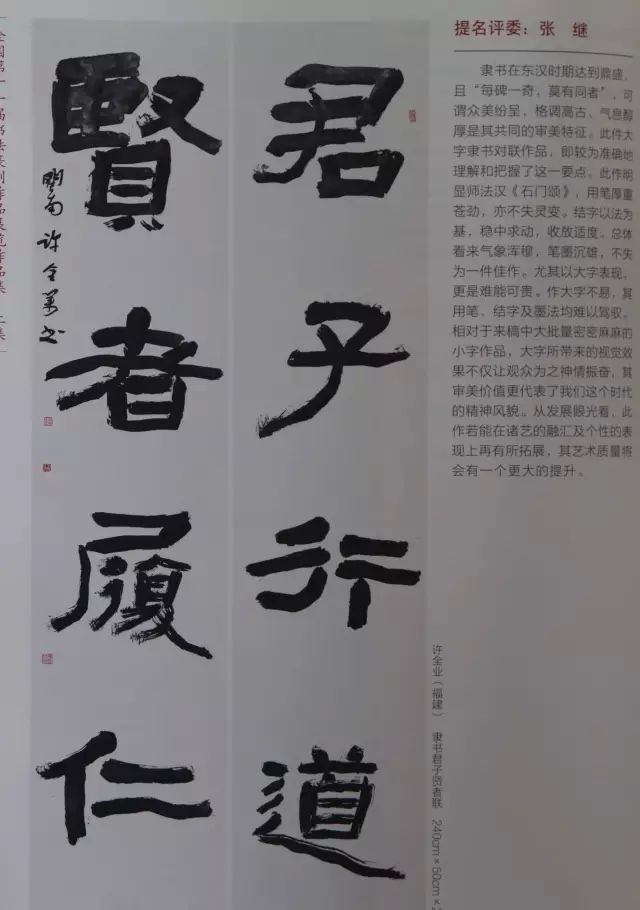 全国第十一届书法篆刻作品展览作品集
提名评委：张 继
隶书在东汉时期达到鼎盛，
且“每碑一奇，莫有同者”，可
谓众美纷呈，格调高古、气息醇
厚是其共同的审美特征。此件大
字隶书对联作品，即较为准确地
理解和把握了这一要点。此作明
显师法汉《石门颂》，用笔厚重
苍劲，亦不失灵变。结字以法为
基，稳中求动，收放适度。总体
看来气象浑穆，笔墨沉雄，不失
为一件佳作。尤其以大字表现，
更是难能可贵。作大字不易，其
用笔、结字及墨法均难以驾驭。
相对于来稿中大批量密密麻麻的
小字作品，大字所带来的视觉效
果不仅让观众为之神情振奋，其
审美价值更代表了我们这个时代
的精神风貌。从发展眼光看，此
作若能在诸艺的融汇及个性的表
现上再有所拓展，其艺术质量将
会有一个更大的提升。
君子行道
賢者履仁
许全業书
许全业（福建） 隶书君子贤者联 240cm×50cm×